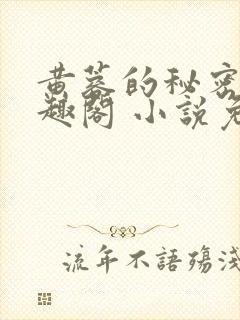 黄蓉的秘密
趣閣 小說免
流年不語殤淺